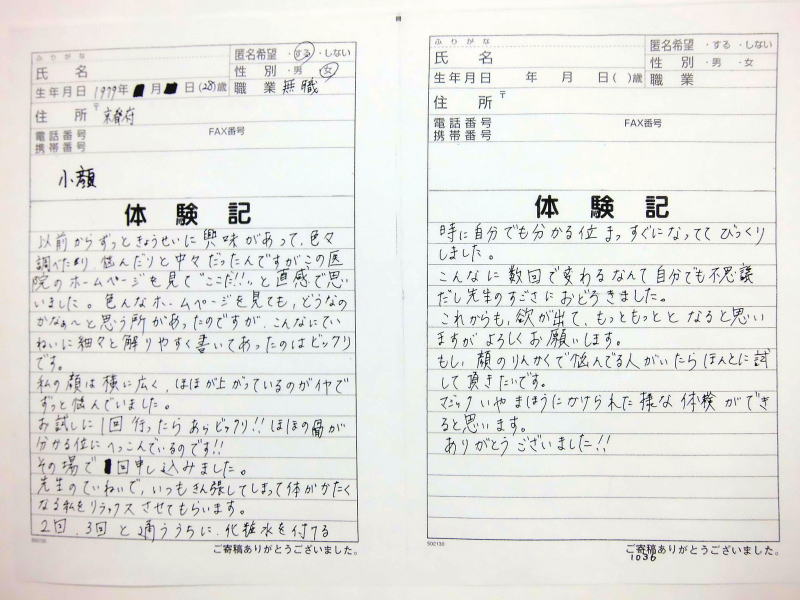 ふりがな
氏 名
匿名希望 ・する ・しない
性 別 ・男 ・女
生年月日 1979年 月 日 (28)歳
職 業 無職
住 所 〒 京都府
電話番号 FAX番号
携帯番号
小顔
体 験 記
以前からずっときょうせいに興味があって、色々
調べたり、悩んだりと中々だったんですがこの医
院のホームページを見て"ここだ!!"と直感で思
いました。色んなホームページを見ても、どうなの
かなぁ〜と思う所があったのですが、こんなにてい
ねいに細々と解りやすく書いてあったのはビックリ
です。
私の顔は横に広く、ほほが上がっているのがイヤで
ずっと悩んでいました。
お試しに1回行ったらあらビックリ!!ほほの骨が
分かる位にへっこんでいるのです!!
その場で 回申し込みました。
先生のていねいで、いつもきん張してしまって体がかたく
なる私をリラックスさせてもらいます。
2回、3回と通ううちに、化粧水を付ける
502130
ご寄稿ありがとうございました。
ふりがな
氏 名
匿名希望 ・する ・しない
性 別 ・男 ・女
生年月日 年 月 日( )歳
職 業
住 所 〒
電話番号 FAX番号
携帯番号
体 験 記
時に自分でも分かる位まっすぐになっててびっくり
しました。
こんなに数回で変わるなんて自分でも不思議
だし先生のすごさにおどろきました。
これからも、欲が出て、もっともっととなると思い
ますがよろしくお願いします。
もし、顔のりんかくで悩んでる人がいたらほんとに試
して頂きたいです。
マジックいやまほうにかけられた様な体検ができ
ると思います。
ありがとうございました!!
502130
ご寄稿ありがとうございました。
1036